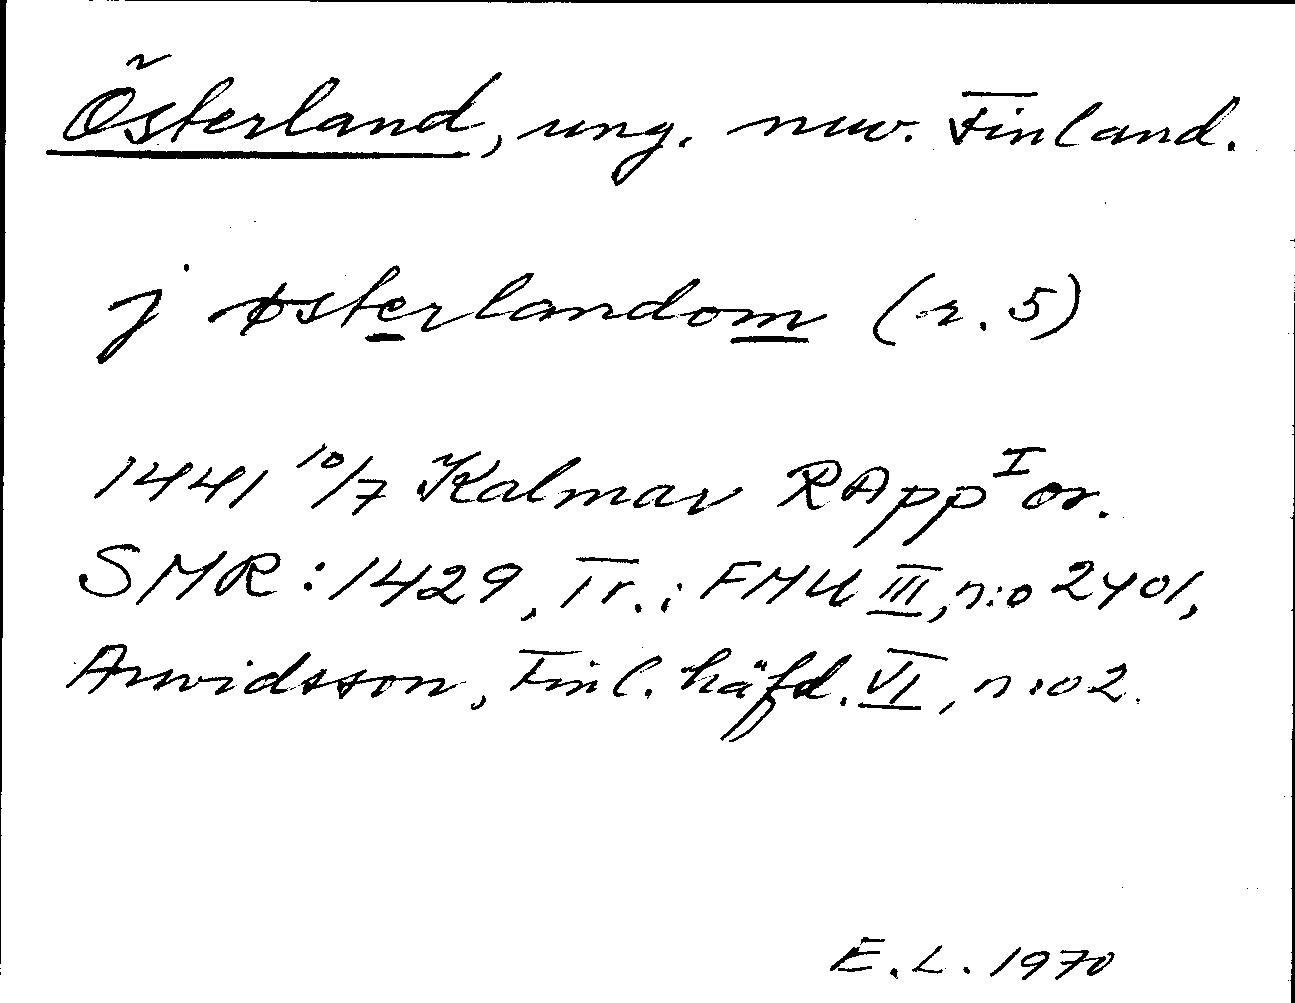 Österland, ung. nuv. Finland.
j østerlandom (r. 5)
1441 10/7 Kalmar RApp I or.
SMR: 1429, Tr.: FMU III, n:o 2401,
Arwidsson, Finl. häfd. VI, n:o 2.
E.L. 1970